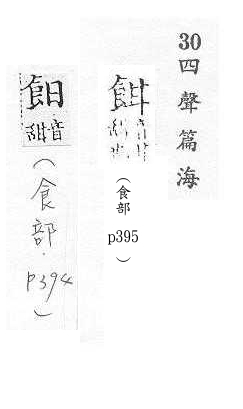 30四聲篇海
(食部 p395)
音甜
(食部.p394)